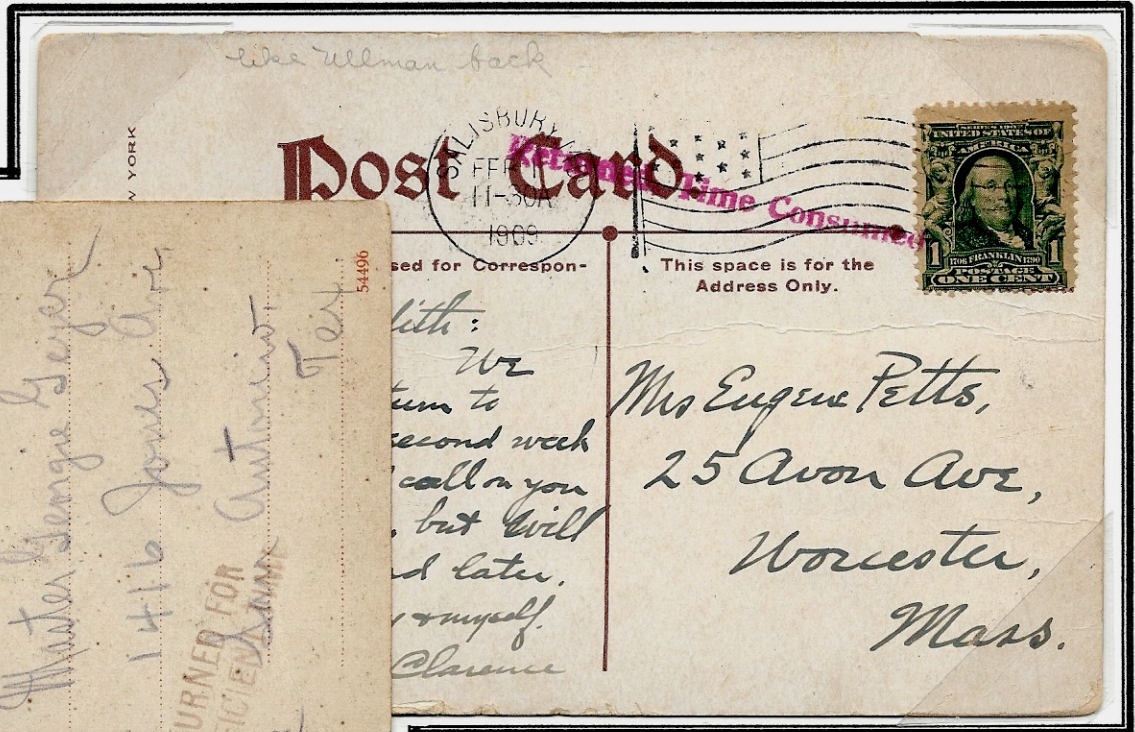 like Ullman back
W YORK
Post Card.
SALISBURY
FEB
11-30A
1909
Returned Time Consumed
SERIES 1902
UNITED STATES OF
AMERICA
1
1706 FRANKLIN 1790
1
POSTAGE
ONE CENT
sed for Correspon-
This space is for the
Address Only.
dith:
We
turn to
second week
call on you
, but will
nd later.
y & myself.
Clarence
Mrs Eugene Petts,
25 Avon Ave,
Worcester,
Mass.
54496
Master George Geyer
1416 Jones Ave
San Antonio,
Tex
URNED FOR
FICIEN